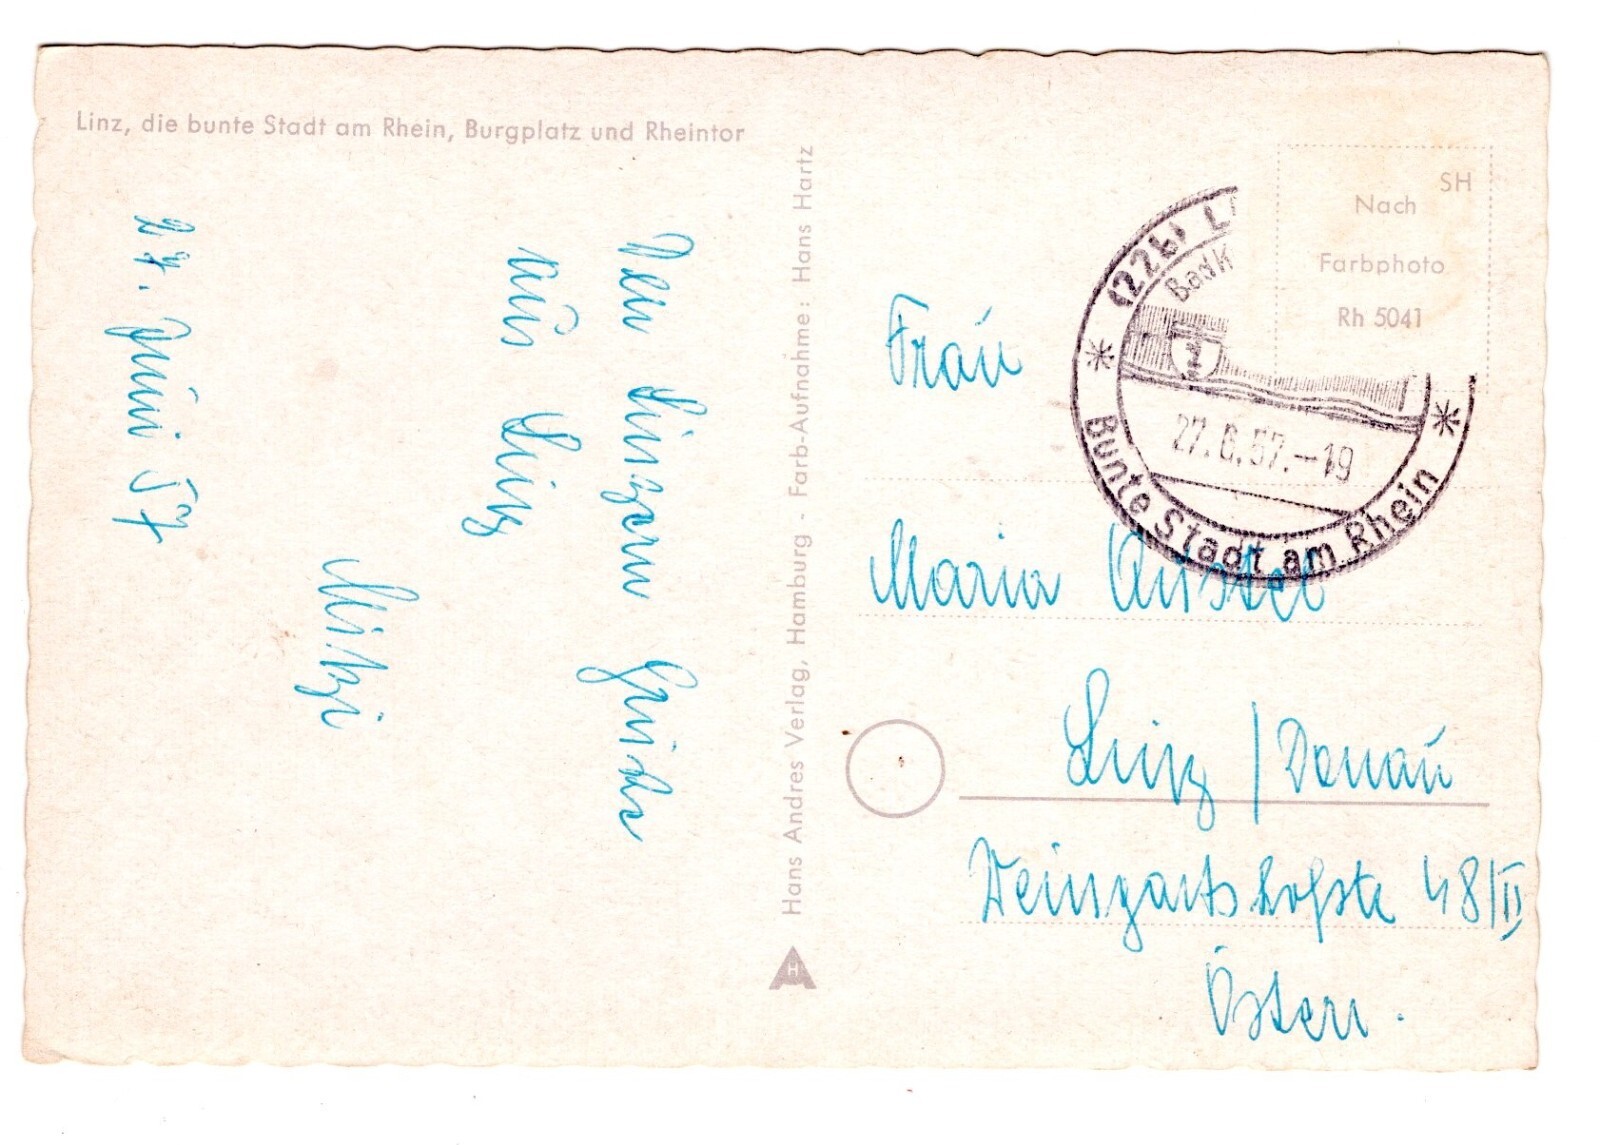 Linz, die bunte Stadt am Rhein, Burgplatz und Rheintor
27. Juni 57
Den Linzern Grüße
aus Linz
Mitzi
Hans Andres Verlag, Hamburg - Farb-Aufnahme: Hans Hartz
H
SH
Nach
Farbphoto
Rh 5041
(22b) L
27.6.57.-19
Bunte Stadt am Rhein
Frau
Maria
Linz / Donau
Weingartshofstr 48/II
Österr.